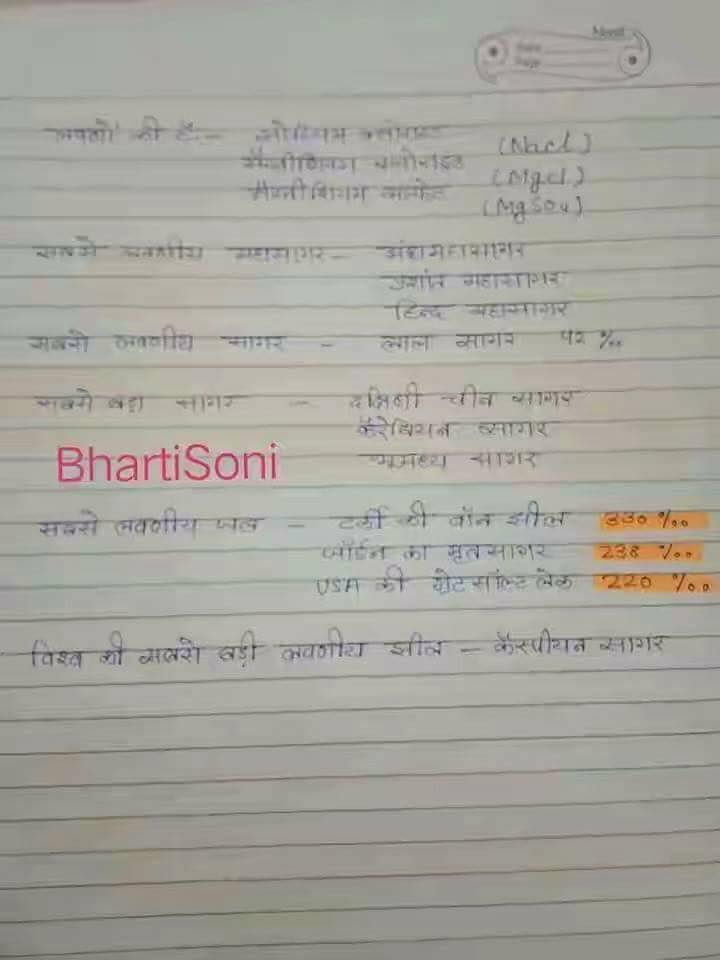 Date
Page
लवणों की है:- सोडियम क्लोराइड (Nacl)
मैग्नीशियम क्लोराइड (Mgcl)
मैग्नीशियम सल्फेट (MgSO4)
सबसे लवणीय महासागर - अंधमहासागर
प्रशांत महासागर
हिन्द महासागर
सबसे लवणीय सागर - लाल सागर ५२ ‰
सबसे बड़ा सागर - दक्षिणी चीन सागर
कैरेबियन सागर
BhartiSoni
भूमध्य सागर
सबसे लवणीय जल - टर्की की वॉन झील 330 ‰
जॉर्डन का मृतसागर 238 ‰
USA की ग्रेट सॉल्ट लेक 220 ‰
विश्व की सबसे बड़ी लवणीय झील - कैस्पीयन सागर